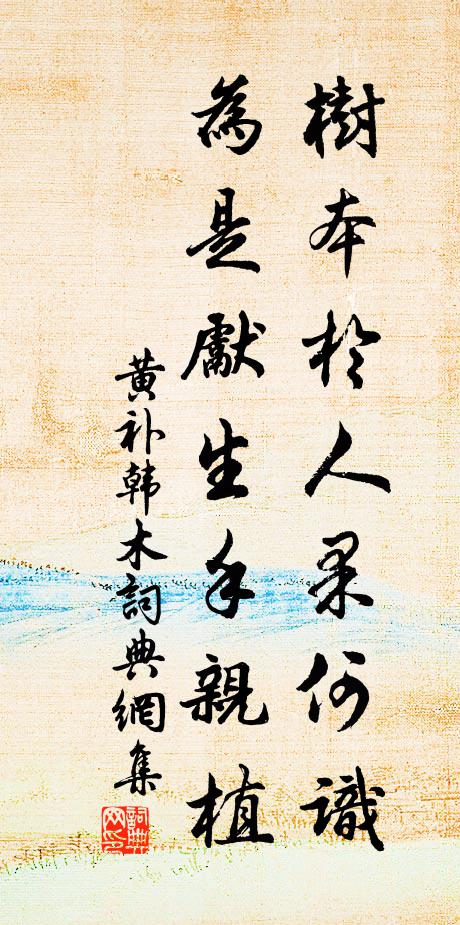 樹本於人果何識
為是獻生手親植
黄补韩木詞典網集
詞典网印